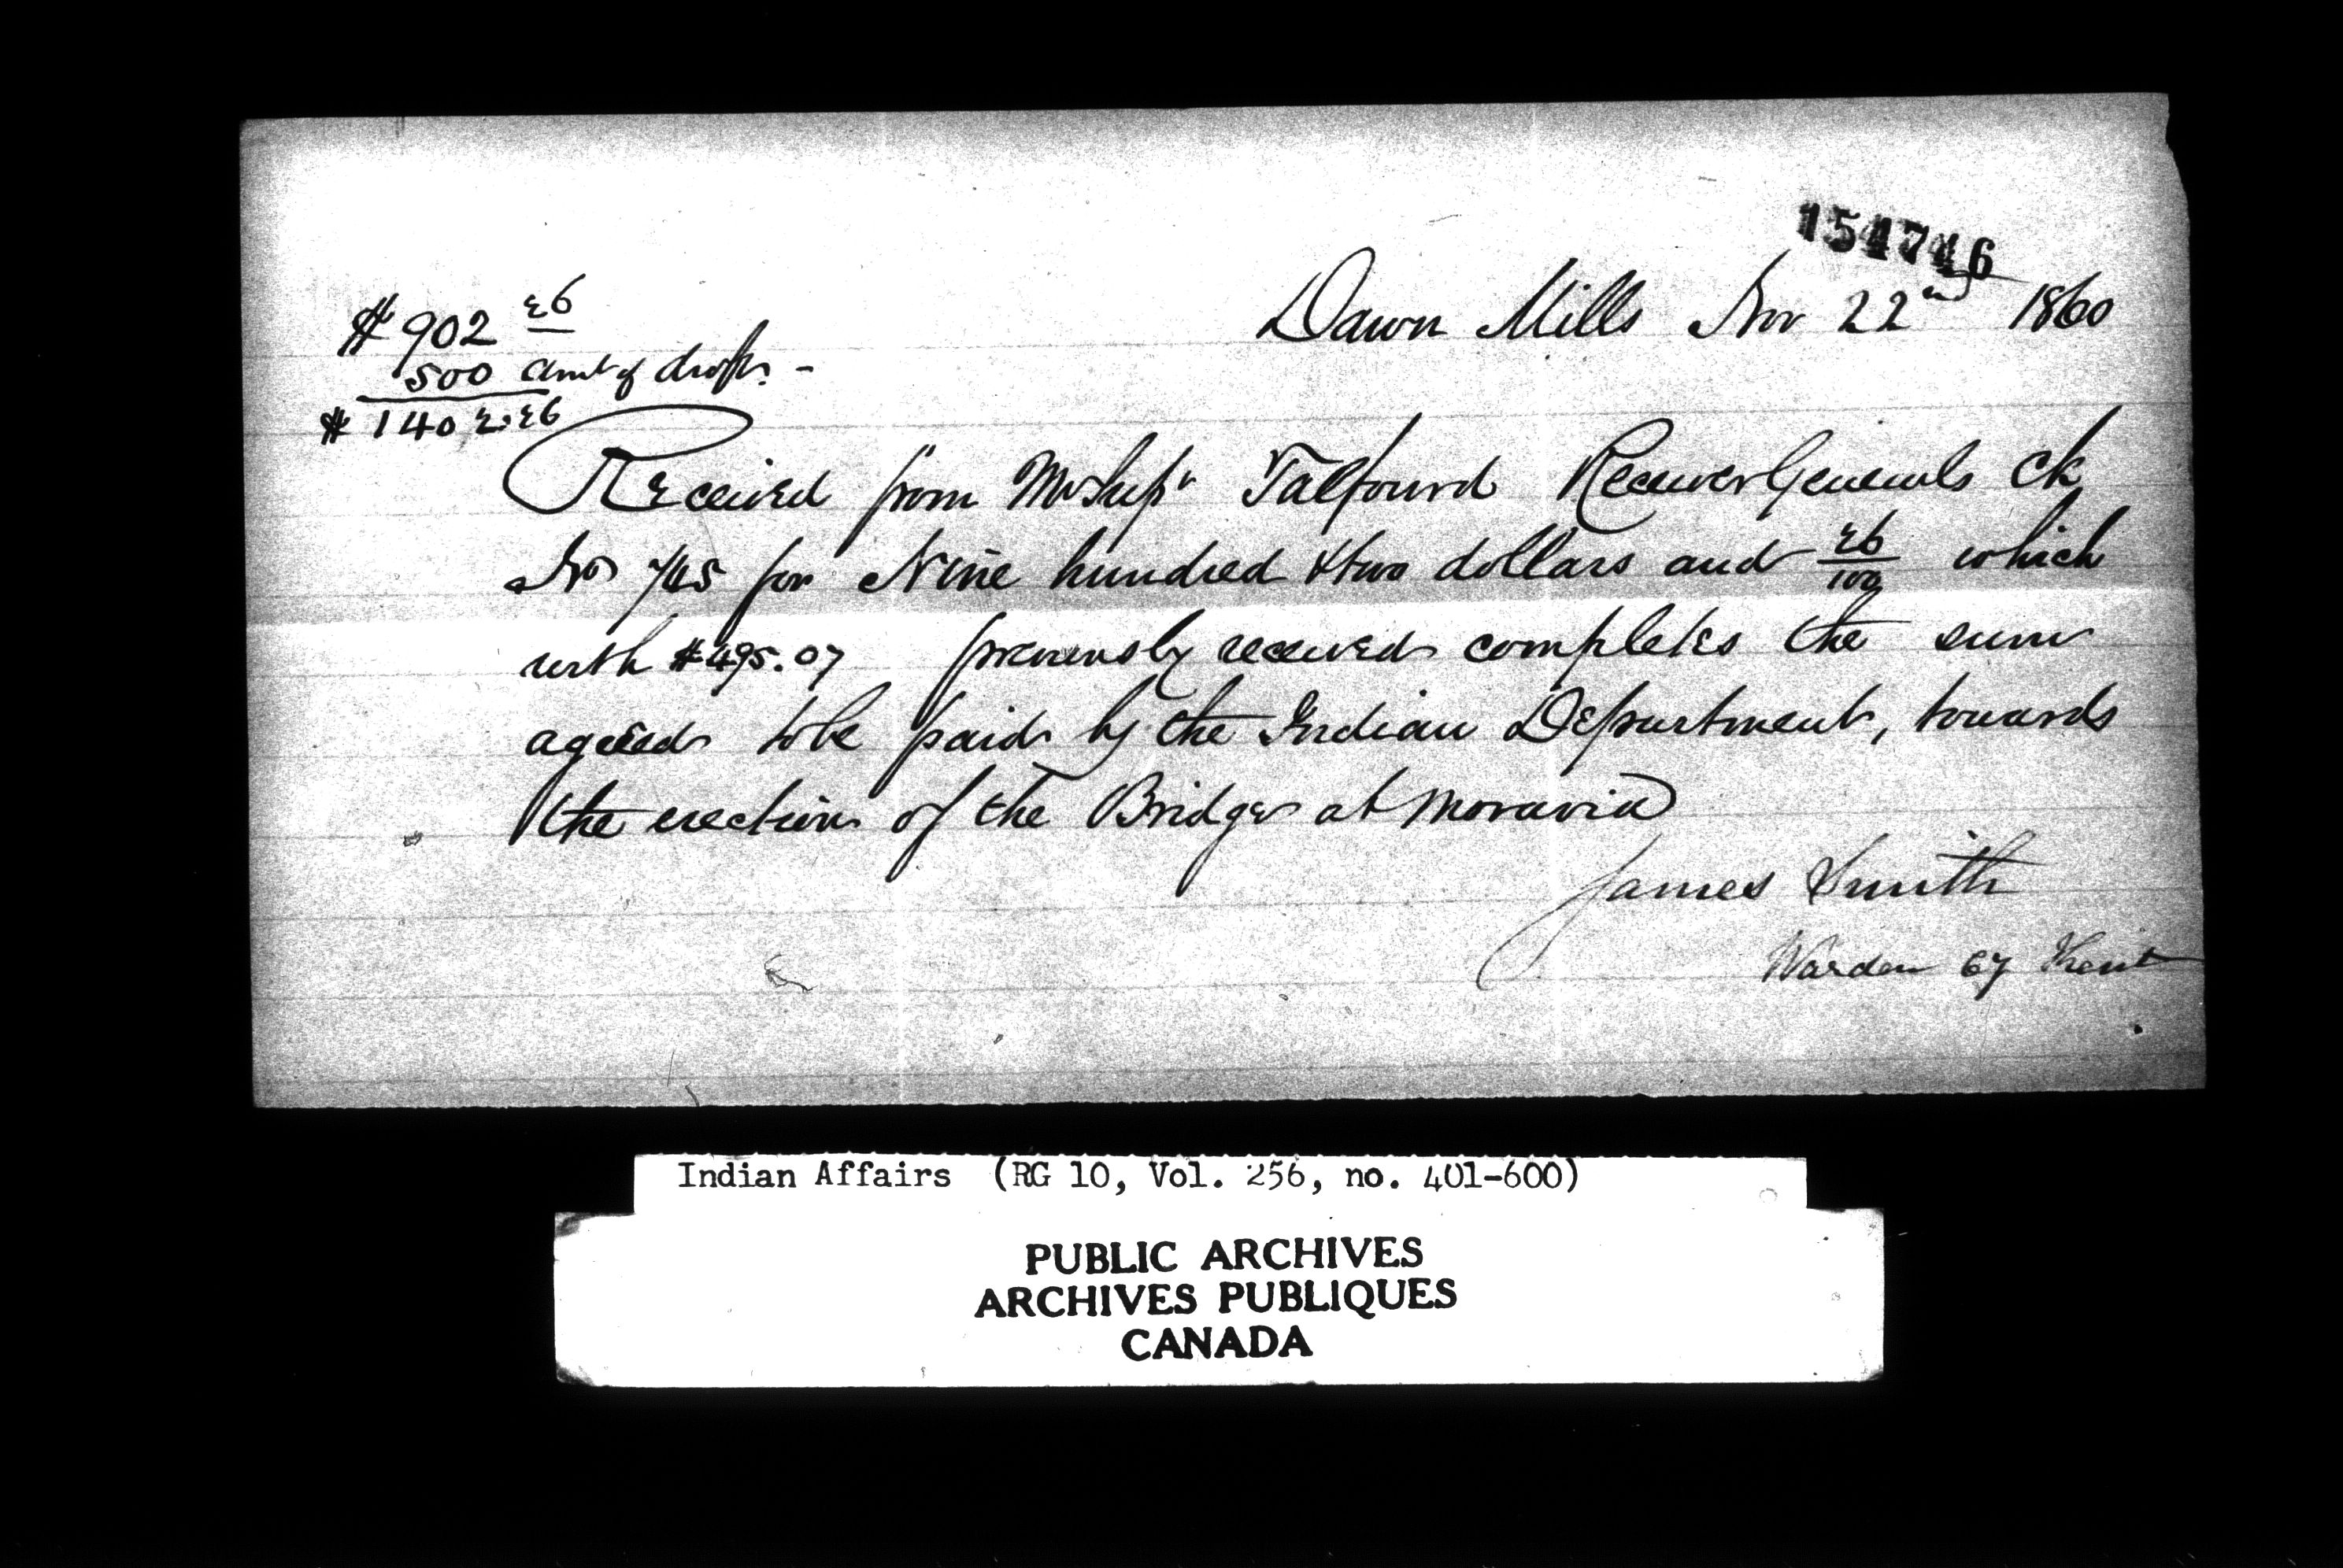 154746
Dawn Mills Nov 22nd 1860
$902 26
500 amt of drafts. -
$1402.26
Received from Mr Supt Talfourd Receiver Generals Ck
No 745 for Nine hundred & two dollars and 26/100 which
with $495.07 previously received completes the sum
agreed to be paid by the Indian Department, towards
the erection of the Bridge at Moravia
James Smith
Warden Cy Kent
Indian Affairs (RG 10, Vol. 256, no. 401-600)
PUBLIC ARCHIVES
ARCHIVES PUBLIQUES
CANADA